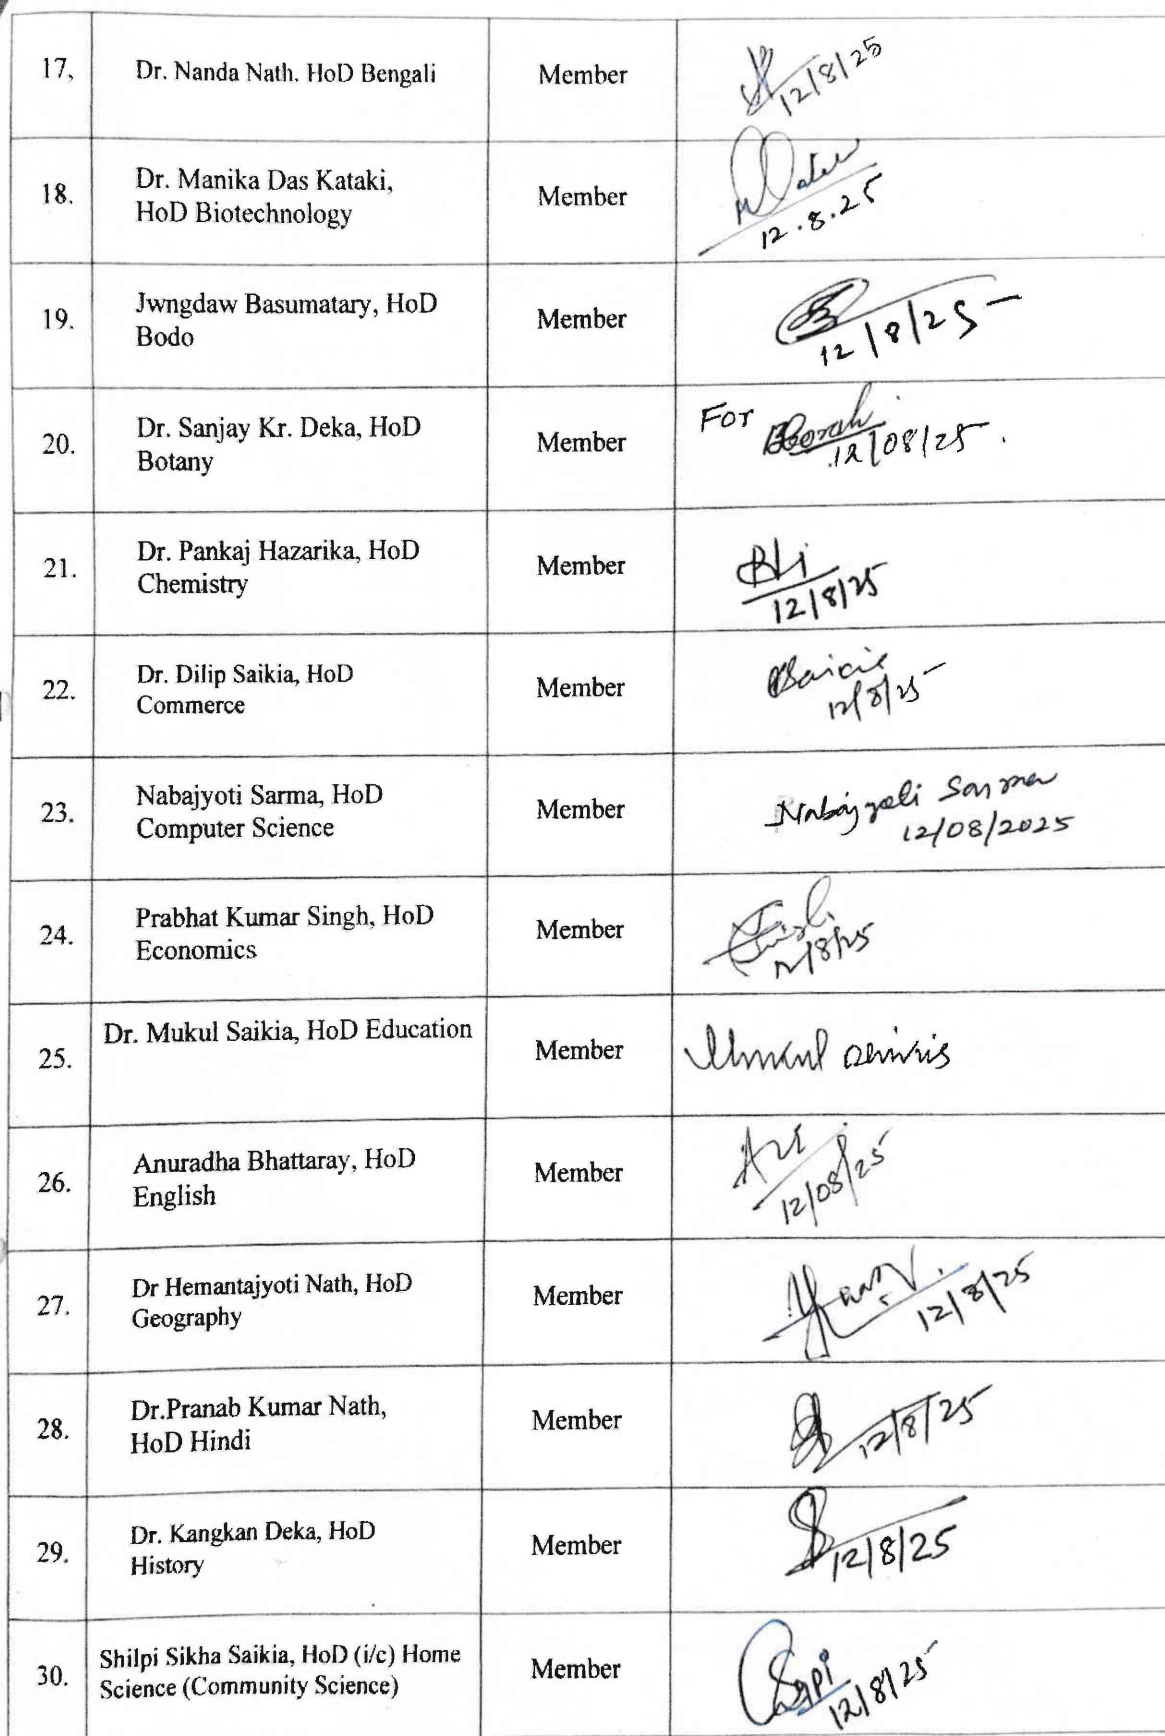 17, Dr. Nanda Nath. HoD Bengali Member 12/8/25
18. Dr. Manika Das Kataki,
HoD Biotechnology Member
12.8.25
19. Jwngdaw Basumatary, HoD
Bodo Member
12/8/25
20. Dr. Sanjay Kr. Deka, HoD
Botany Member
For Borah
12/08/25.
21. Dr. Pankaj Hazarika, HoD
Chemistry Member
12/8/25
22. Dr. Dilip Saikia, HoD
Commerce Member
Saikia
12/8/25
23. Nabajyoti Sarma, HoD
Computer Science Member
Nabajyoti Sarma
12/08/2025
24. Prabhat Kumar Singh, HoD
Economics Member
12/8/25
25. Dr. Mukul Saikia, HoD Education Member
Mukul
26. Anuradha Bhattaray, HoD
English Member
12/08/25
27. Dr Hemantajyoti Nath, HoD
Geography Member
12/8/25
28. Dr.Pranab Kumar Nath,
HoD Hindi Member
12/8/25
29. Dr. Kangkan Deka, HoD
History Member
12/8/25
30. Shilpi Sikha Saikia, HoD (i/c) Home
Science (Community Science) Member
12/8/25